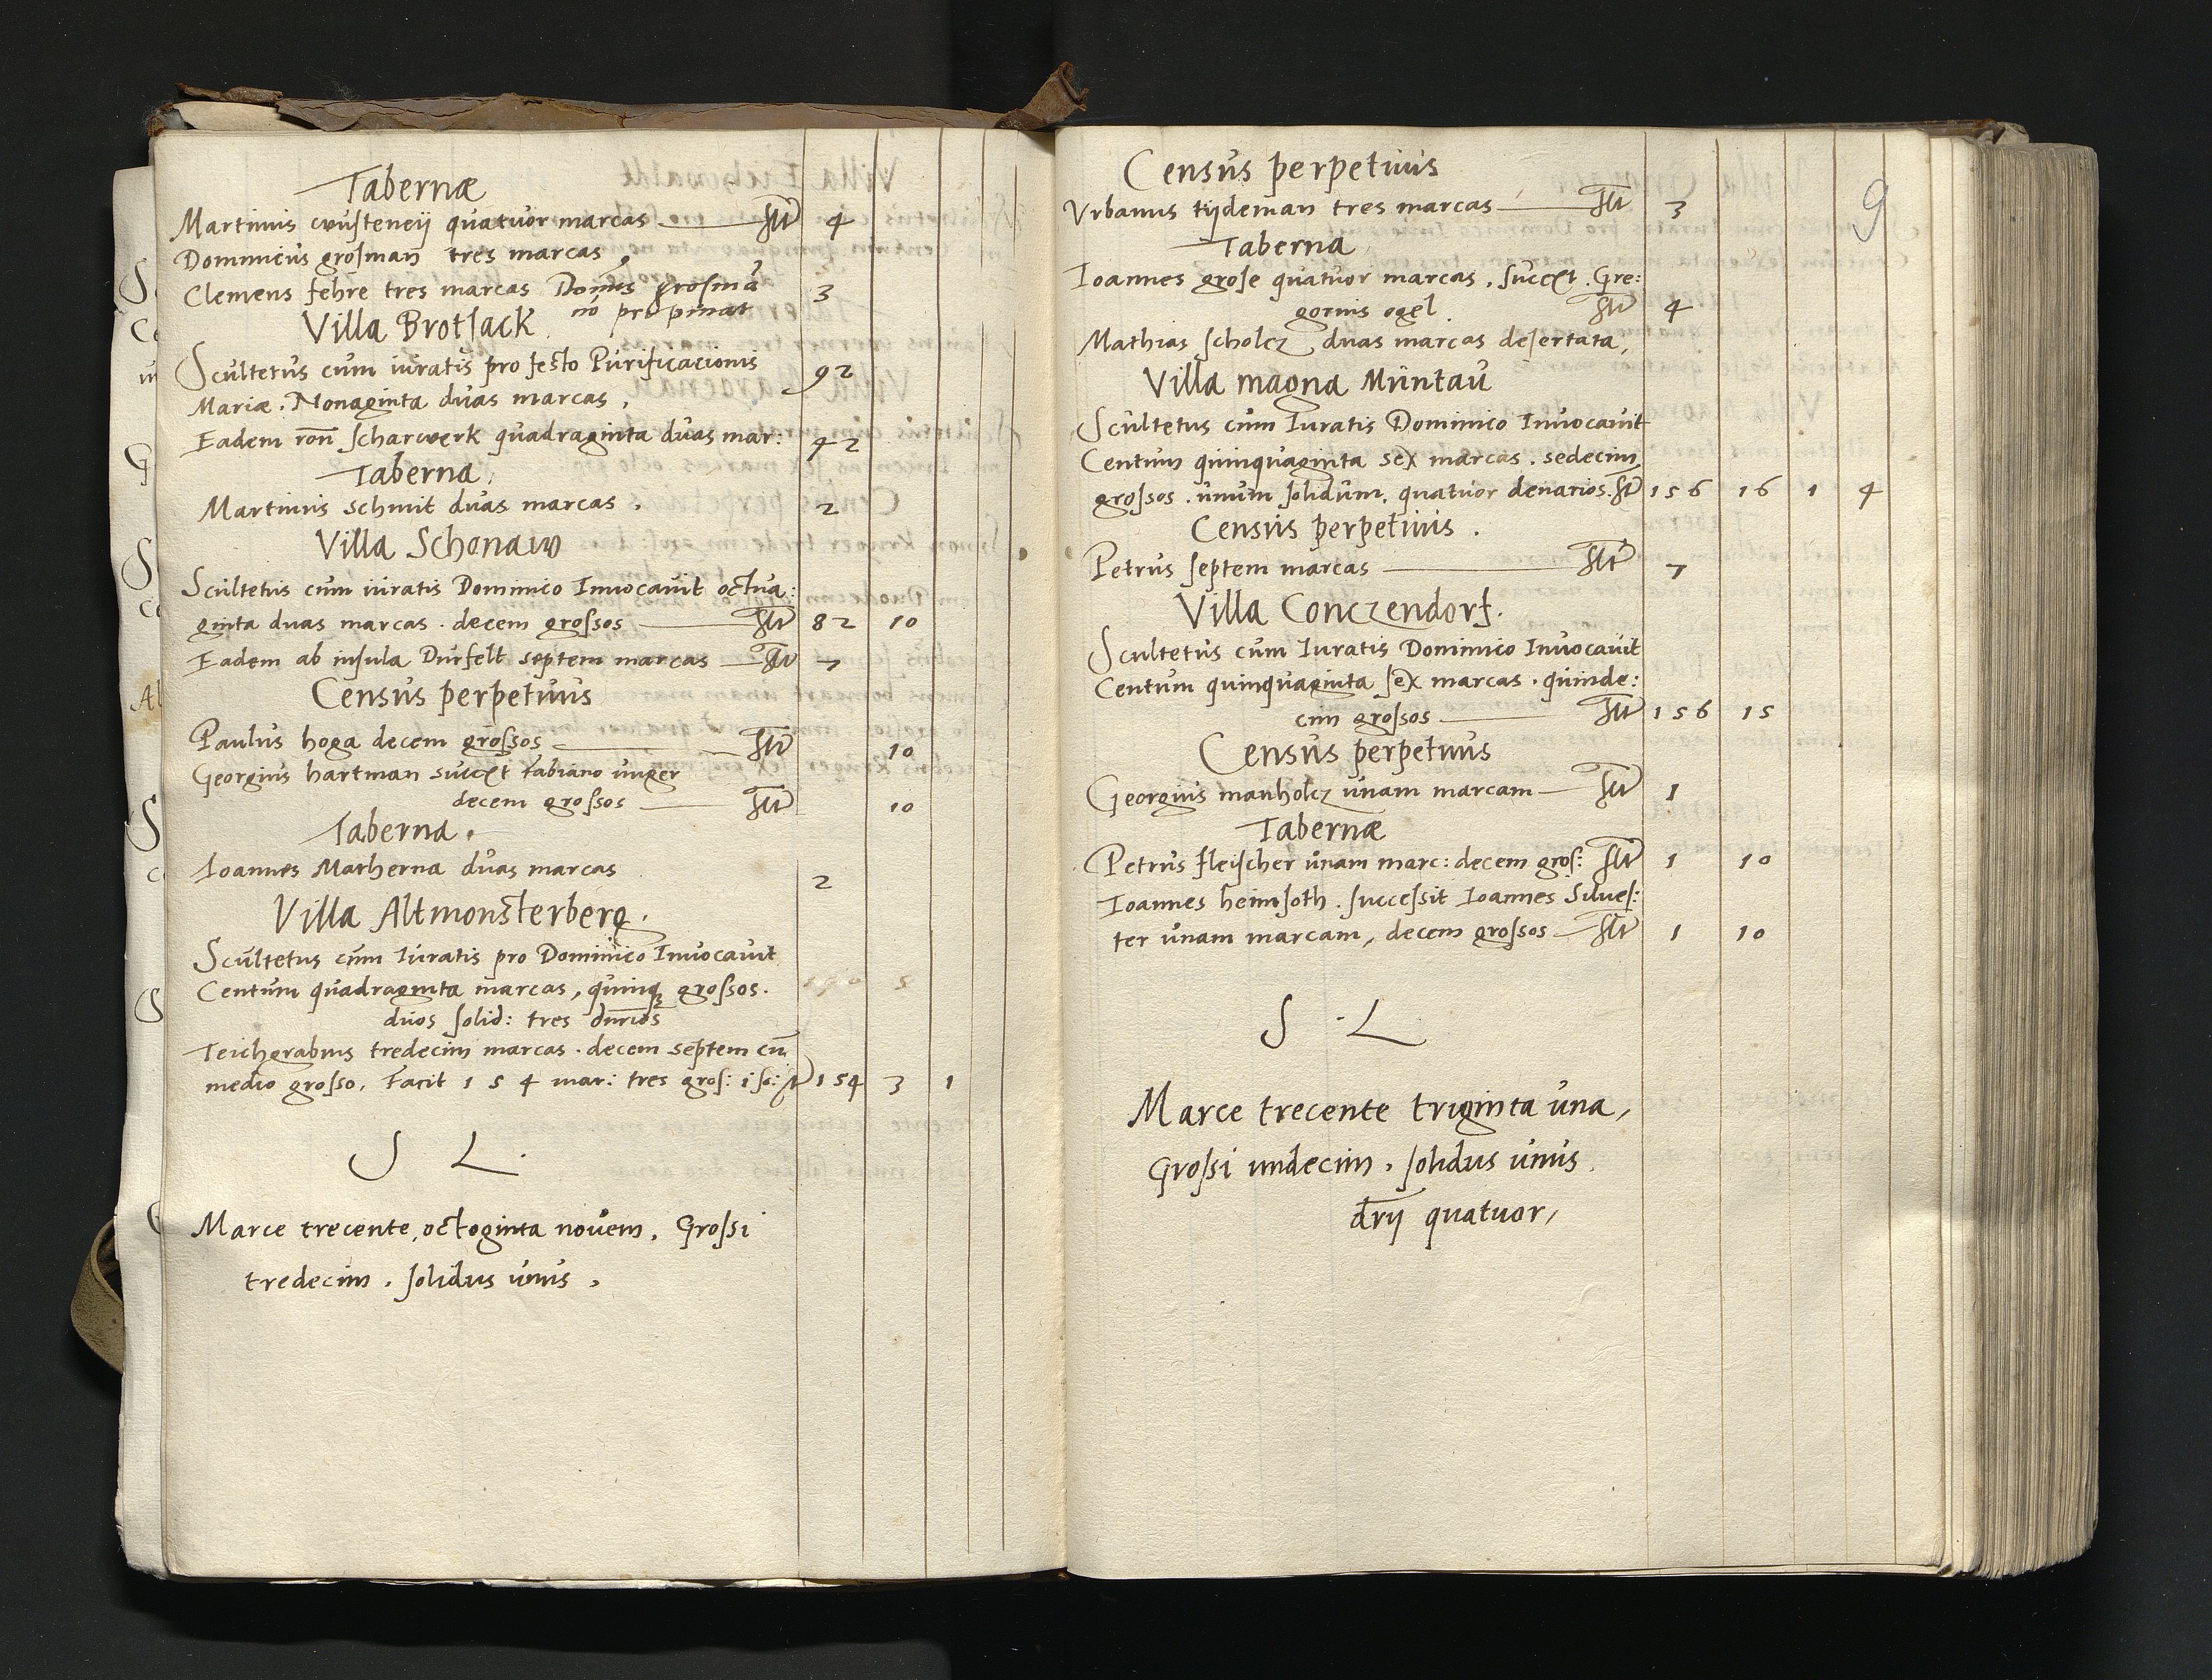 Tabernæ
Martinus wusteneij quatuor marcas 4
Dominicus grosman tres marcas
Clemens fehre tres marcas Domins grosmã 3
nõ propinat
Villa Brotsack
Scultetus cum iuratis pro festo Purificacionis 92
Mariæ. Nonaginta duas marcas.
Eadem rõn scharwerk quadraginta duas mar: 42
Taberna,
Martinus schmit duas marcas. 2
Villa Schonaw
Scultetus cum iuratis Dominico Inuocauit octua:
ginta duas marcas. decem grossos 82 10
Eadem ab insula Durfelt septem marcas 7
Census perpetuus
Paulus hoga decem grossos 10
Georgius hartman succet fabiano unger
decem grossos 10
Taberna.
Ioannes Matherna duas marcas 2
Villa Altmonsterberg.
Scultetus cum Iuratis pro Dominico Inuocauit
Centum quadraginta marcas, quinq grossos. 140 5
duos solid: tres dnrios
Teichgrabius tredecim marcas. decem septem cũ
medio grosso. Facit 154 mar: tres gros: 1 so: 154 3 1
S L.
Marce trecente, octoginta novem. Grossi
tredecim. solidus unus.
9
Census perpetuus
Vrbanus tijdeman tres marcas 3
Taberna
Ioannes grose quatuor marcas. succet. Gre:
gorius ogel 4
Mathias scholcz duas marcas desertata,
Villa magna Muntau
Scultetus cum Iuratis Dominico Inuocauit
Centum quinquaginta sex marcas. sedecim
grossos. unum solidum. quatuor denarios. 156 16 1 4
Census perpetuus.
Petrus septem marcas 7
Villa Conczendorf.
Scultetus cum Iuratis Dominico Inuocauit
Centum quinquaginta sex marcas. quinde:
cim grossos 156 15
Census perpetuus
Georgius manholcz unam marcam 1
Tabernæ
Petrus fleischer unam marc: decem gros: 1 10
Ioannes heinsoth. successit Ioannes Silues:
ter unam marcam, decem grossos 1 10
S. L
Marce trecente triginta una,
Grossi undecim. solidus unus.
drij quatuor,